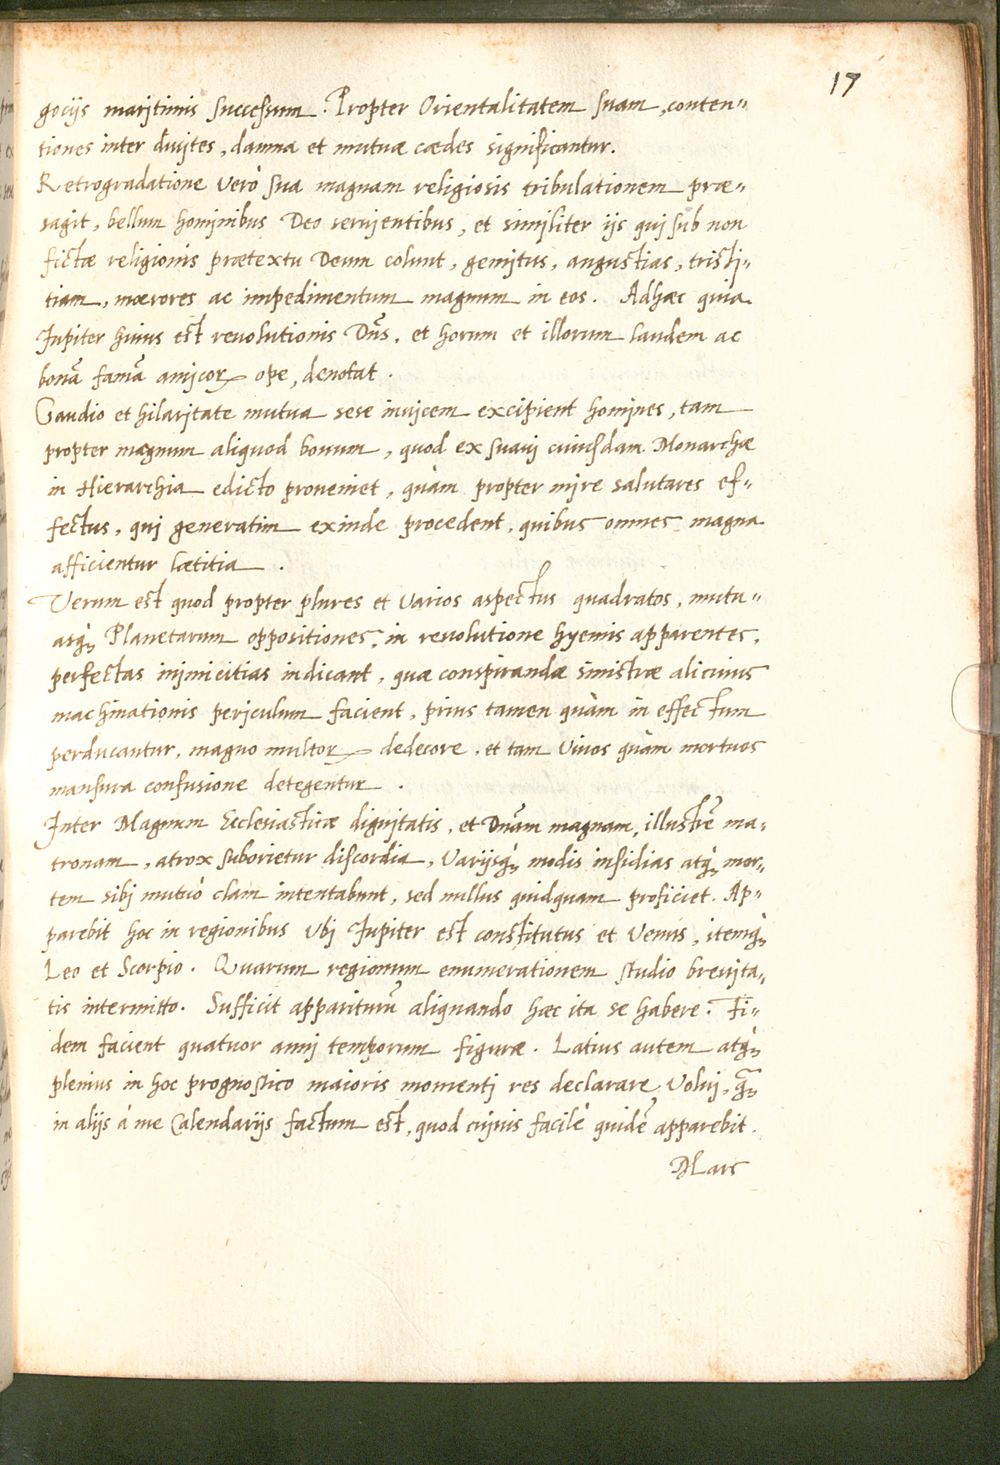 17
gocijs marjtimis successum. Propter Orientalitatem suam, conten=
tiones inter diujtes, damna et mutuæ cædes significantur.
Retrogradatione verò sua magnam religiosis tribulationem præ=
sagit, bellum homjnibus Deo serujentibus, et simjliter ijs quj sub non
fictæ religionis prætextu Deum colunt, gemjtus, angustias, tristj=
tiam, mœrores ac impedimentum magnum in eos. Adhæc quia
Jupiter huius est reuolutionis Dñs, et horum et illorum laudem ac
bonā famā amjcorꝝ ope, denotat.
Gaudio et hilarjtate mutua sese inujcem excipient homjnes, tam
propter magnum aliquod bonum, quod ex suauj cuiusdam Monarchæ
in Hierarchia edicto proueniet, quàm propter mjre salutares ef=
fectus, quj generatim exinde procedent, quibus omnes magna
afficientur lætitia.
Verum est quod propter plures et varios aspectus quadratos, mutu=
asq́ Planetarum oppositiones, in reuolutione hyemis apparentes,
perfectas injmicitias indicant, quæ conspirandæ sinistræ alicuius
machinationis perjculum facient, prius tamen quàm in effectum
perducantur, magno multorꝝ dedecore, et tam viuos quàm mortuos
mansura confusione detegentur.
Inter Magnum Ecclesiasticæ dignjtatis, et Dnām magnam, illustrē ma=
tronam, atrox suborietur discordia, Varijsq́ modis insidias atq́ mor=
tem sibj mutuò clam intentabunt, sed nullus quidquam proficiet. Ap=
parebit hoc in regionibus vbj Jupiter est constitutus et Venus, itemq́
Leo et Scorpio. Quarum regionum enumerationem studio breujta=
tis intermitto. Sufficit appariturū aliquando hæc ita se habere. Fi=
dem facient quatuor annj temporum figuræ. Latius autem atq́
plenius in hoc prognostico maioris momentj res declarare voluj, q̄
in alijs à me Calendarijs factum est, quod cujuis facilè quidē apparebit.
Mars